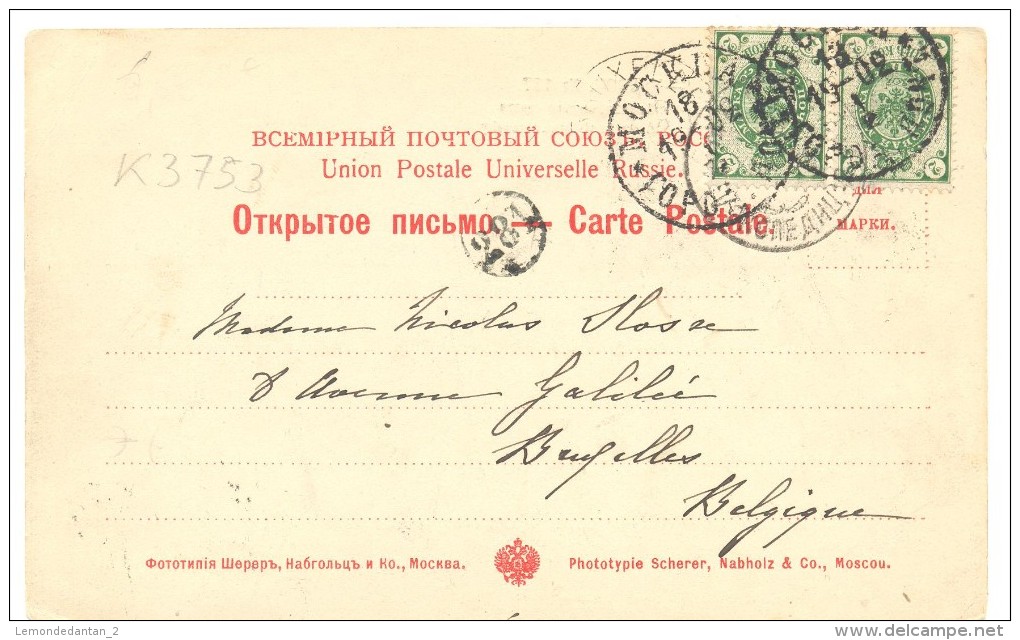 ВСЕМІРНЫЙ ПОЧТОВЫЙ СОЮЗЪ.
Union Postale Universelle Russie.
K3753
Открытое письмо. — Carte Postale.
МАРКИ.
МОСКВА
18
Madame Nicolas Slosse
8 Avenue Galilée
Bruxelles
Belgique
Фототипія Шереръ, Набгольцъ и Ко., Москва.
Phototypie Scherer, Nabholz & Co., Moscou.
Lemondedantan_2
delcampe.net